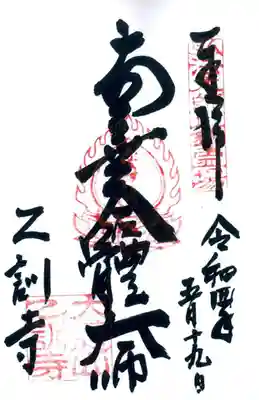 奉拝
令和四年
五月十九日
南無合體大師
乙訓寺